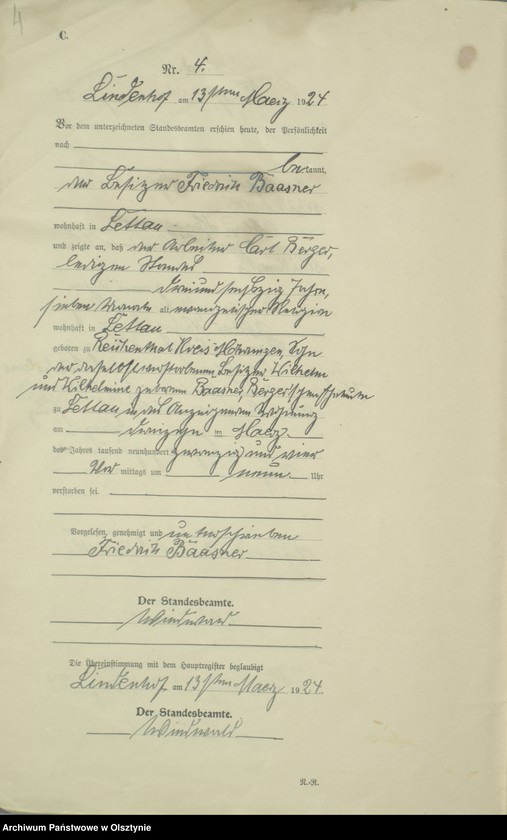 4
C.
Nr. 4.
Lindenhof am 13ten Maerz 1924
Vor dem unterzeichneten Standesbeamten erschien heute, der Persönlichkeit
nach
bekannt,
der Besitzer Friedrich Baasner
wohnhaft in Lettau
und zeigte an, daß der Arbeiter Carl Berger,
ledigen Standes
dreiundsechszig Jahre,
sieben Monate alt, evangelischer Religion
wohnhaft in Lettau
geboren zu Reichenthal Kreis Mohrungen, Sohn
der daselbst verstorbenen Besitzer Wilhelm
und Wilhelmine geborenen Baasner, Berger'schen Eheleute
zu Lettau in des Anzeigenden Wohnung
am dreizehn ten Maerz
des Jahres tausend neunhundert zwanzig und vier
Vor mittags um neun Uhr
verstorben sei.
Vorgelesen, genehmigt und unterschrieben
Friedrich Baasner
Der Standesbeamte.
Die Übereinstimmung mit dem Hauptregister beglaubigt
Lindenhof am 13ten Maerz 1924
Der Standesbeamte.
R.-R.
Archiwum Państwowe w Olsztynie